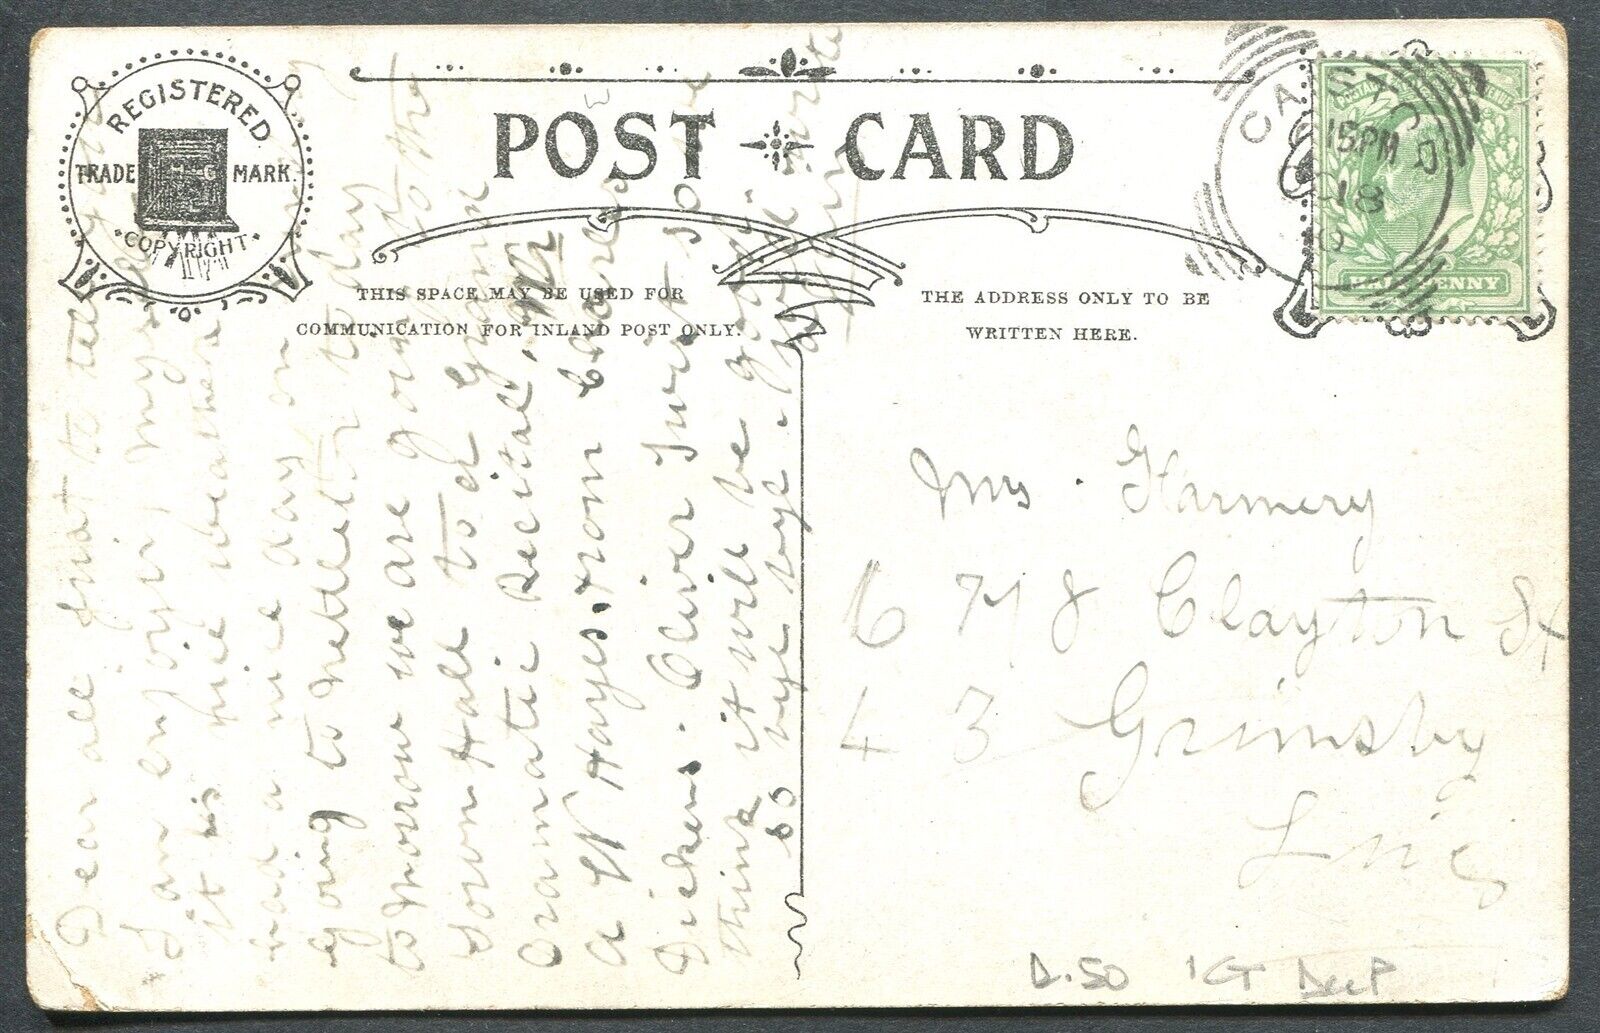 REGISTERED
TRADE MARK.
COPYRIGHT
POST CARD
THIS SPACE MAY BE USED FOR
COMMUNICATION FOR INLAND POST ONLY.
THE ADDRESS ONLY TO BE
WRITTEN HERE.
15PM
18
Dear all just to tell you
I am enjoying myself
it is nice weather
had a nice day on
going to today
to morrow we are going to the
Town Hall to a gram
Dramatic Recital, Mr
a W Hayes, from Charles
Dickens. Oliver Twist so we
think it will be good
so bye bye. write
again
Mrs. Harmery
6 78 Clayton St
43 Grimsby
Linc
D.50